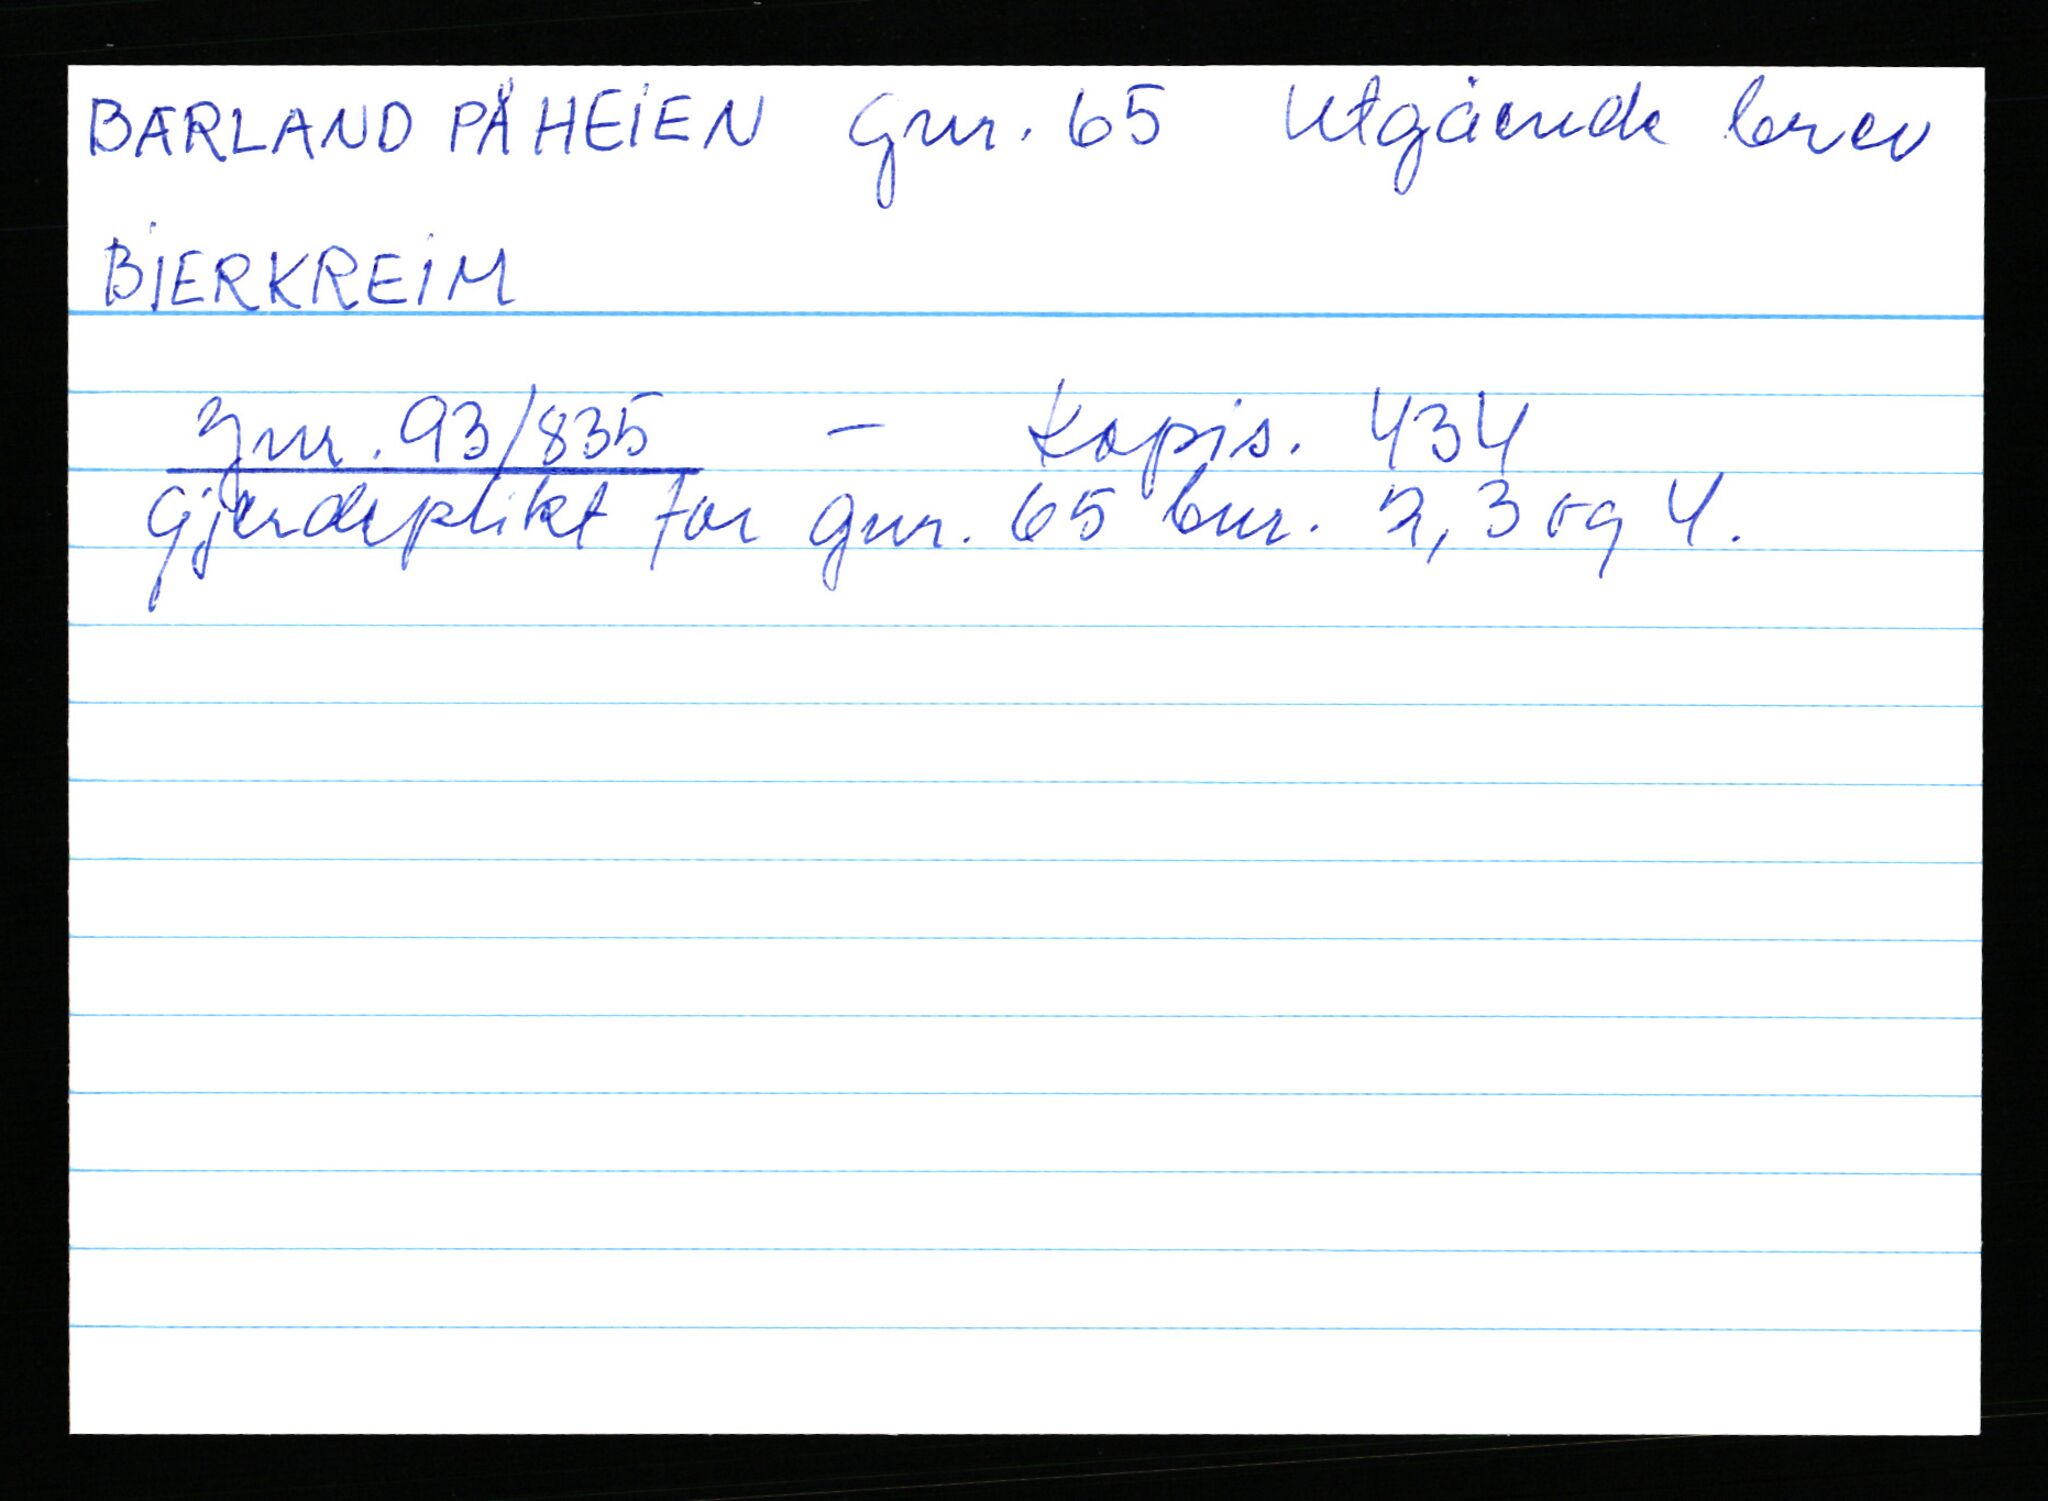 BÆRLAND PÅ HEIEN Gnr. 65 Utgående brev
BJERKREIM
Jnr. 93/835 - Kopis. 434
Gjerdeplikt for gnr. 65 bnr. 2, 3 og 4.